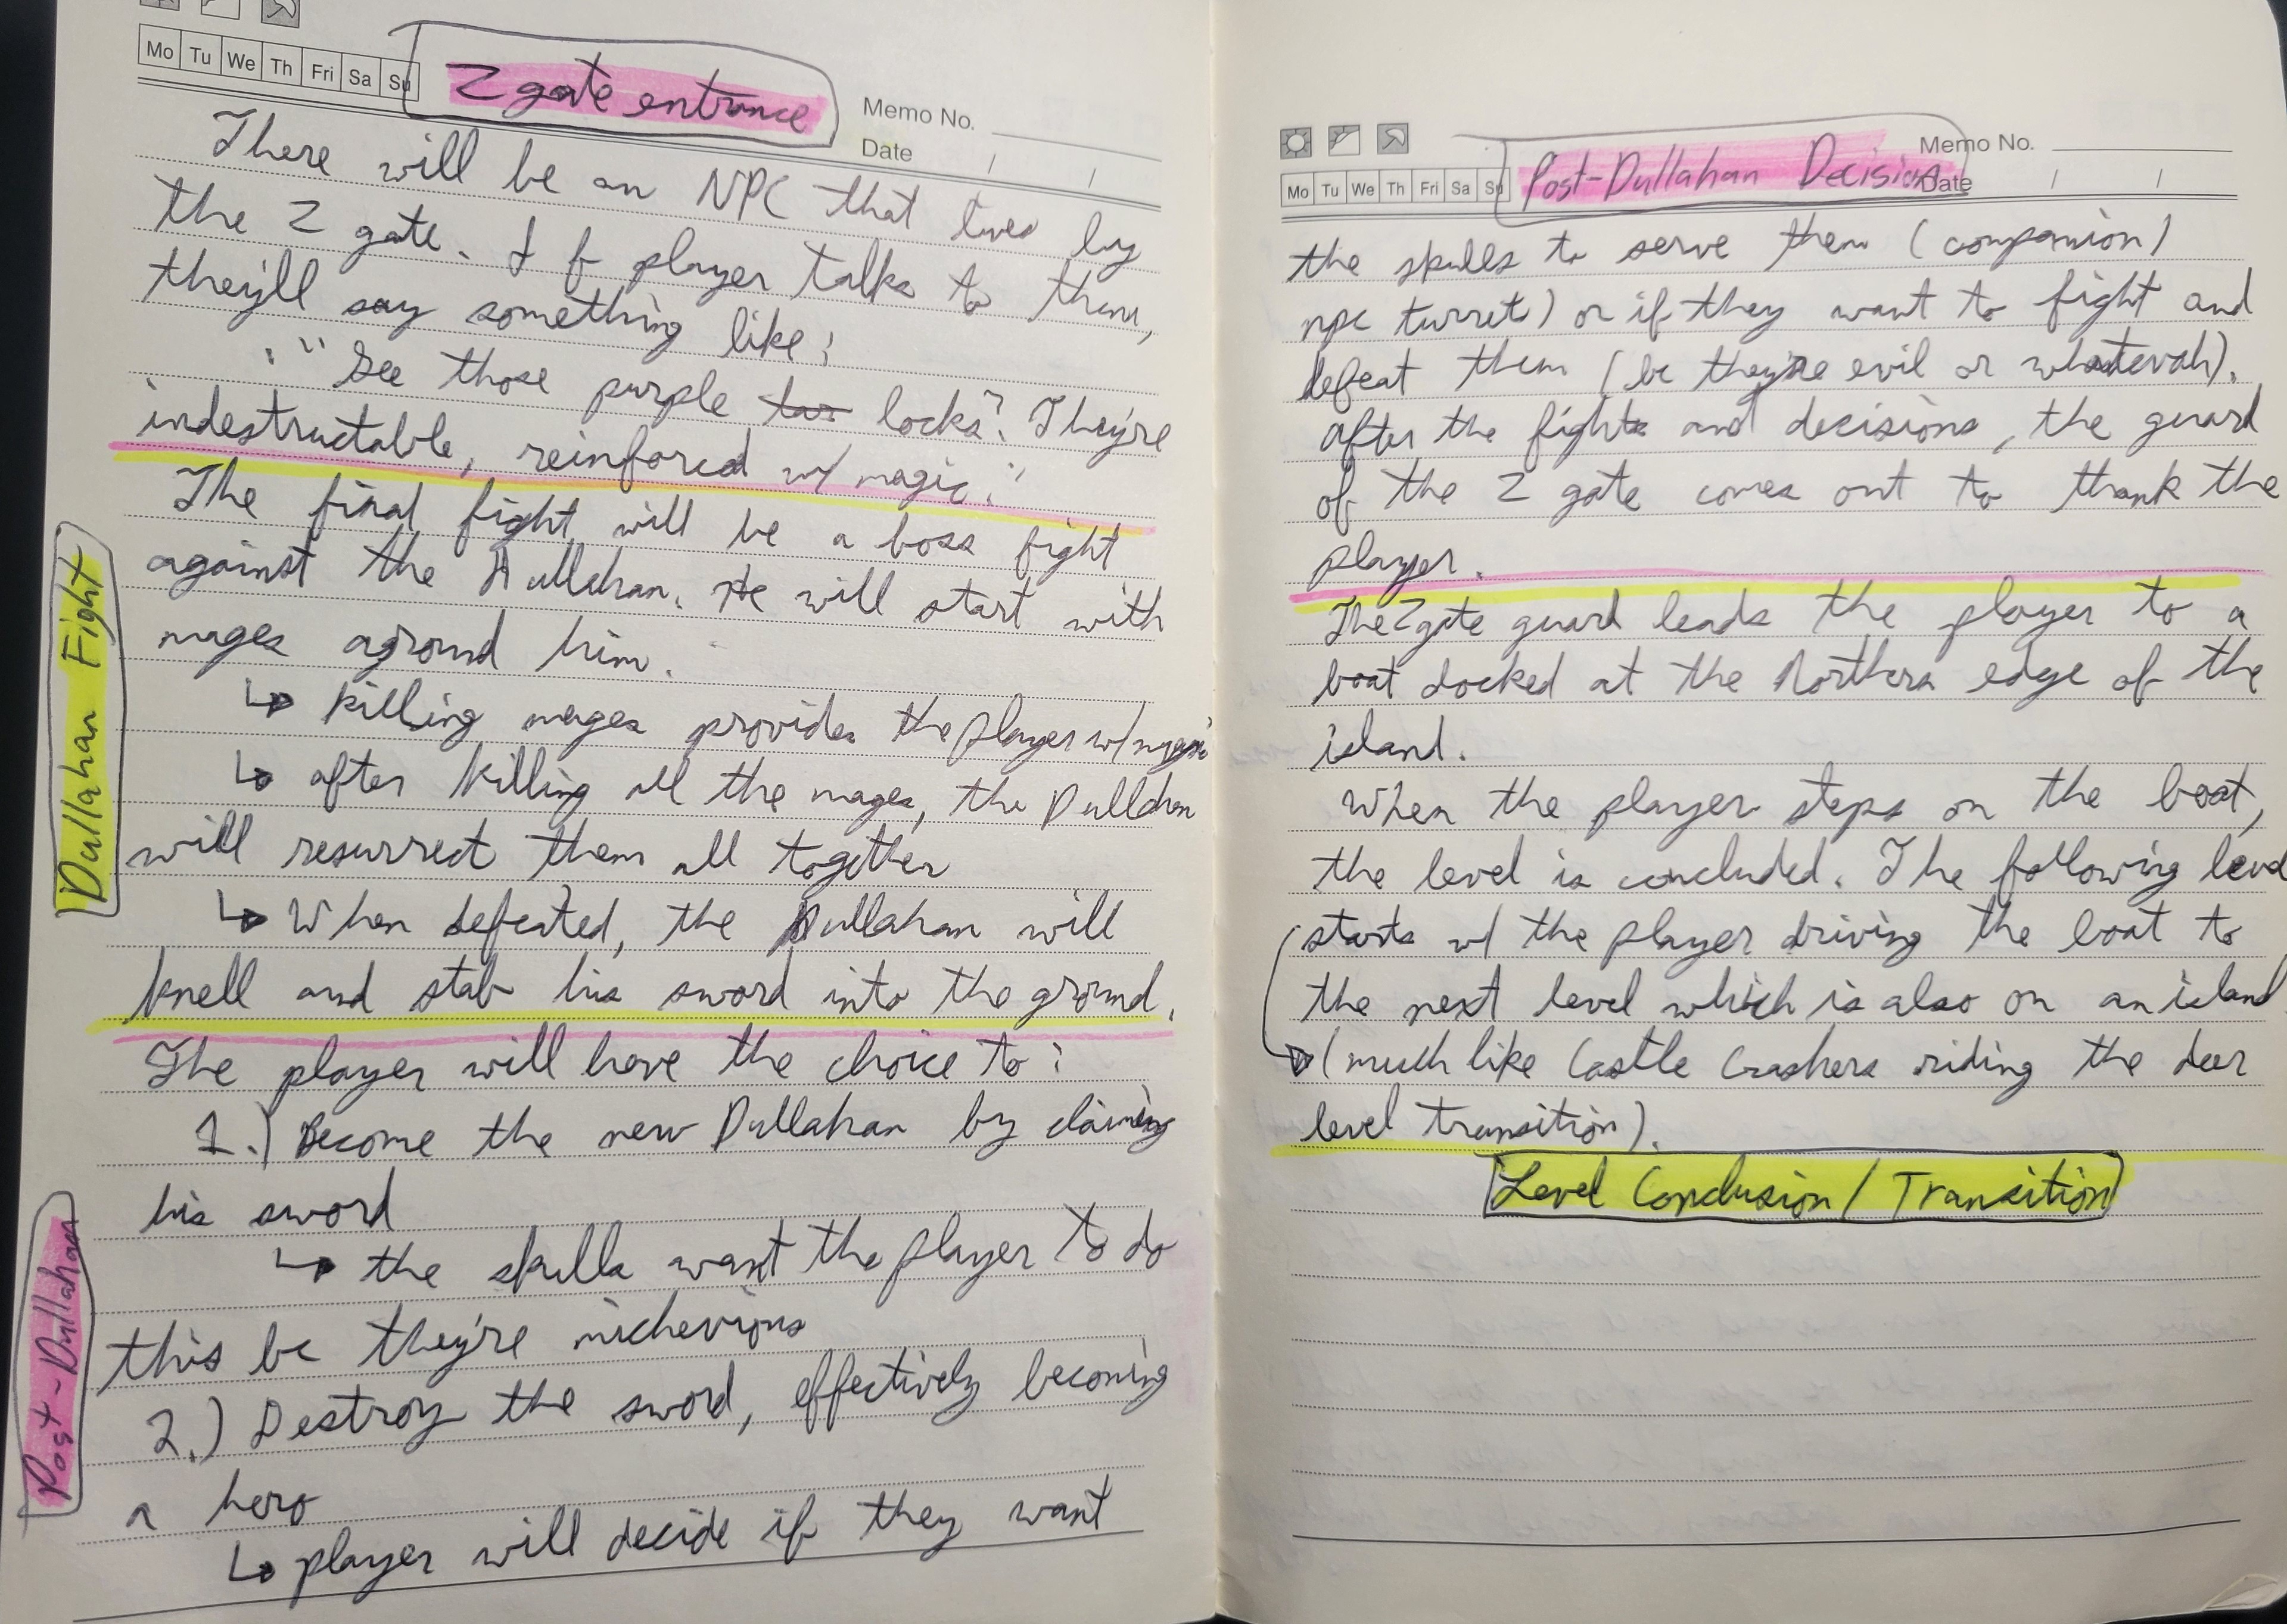 Mo Tu We Th Fri Sa Su
Z gate entrance
Memo No.
Date / /
There will be an NPC that lives by
the Z gate. If player talks to them,
they'll say something like:
"See those purple locks? They're
indestructable, reinforced w/ magic."
Dullahan Fight
The final fight will be a boss fight
against the Dullahan. He will start with
mages aground him.
↳ killing mages provides the player w/ magic
↳ after killing all the mages, the Dullahan
will resurrect them all together
↳ When defeated, the Dullahan will
knell and stab his sword into the ground.
Post-Dullahan
The player will have the choice to:
1.) Become the new Dullahan by claiming
his sword
↳ the skulls want the player to do
this bc they're michevious
2.) Destroy the sword, effectively becoming
a hero
↳ player will decide if they want
Mo Tu We Th Fri Sa Su
Post-Dullahan Decision
Memo No.
Date / /
the skulls to serve them (companion)
npc turret) or if they want to fight and
defeat them (bc they're evil or whatevah).
after the fights and decisions, the guard
of the Z gate comes out to thank the
player.
The Z gate guard leads the player to a
boat docked at the Northern edge of the
island.
When the player steps on the boat,
the level is concluded. The following level
starts w/ the player driving the boat to
the next level which is also on an island
(much like Castle Crashers riding the deer
level transition).
Level Conclusion / Transition